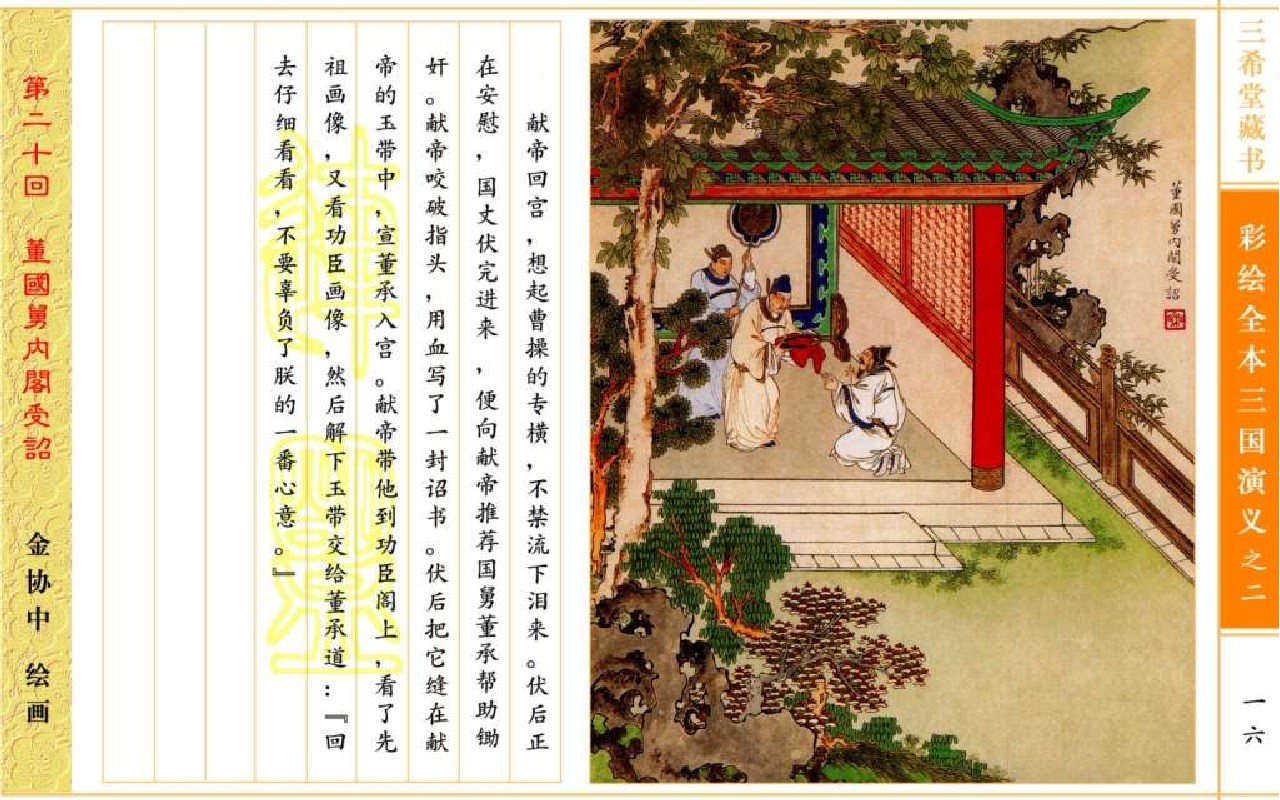 三希堂藏书
彩绘全本三国演义之二
一六
董國舅內閣受詔
献帝回宫，想起曹操的专横，不禁流下泪来。伏后正
在安慰，国丈伏完进来，便向献帝推荐国舅董承帮助锄
奸。献帝咬破指头，用血写了一封诏书。伏后把它缝在献
帝的玉带中，宣董承入宫。献帝带他到功臣阁上，看了先
祖画像，又看功臣画像，然后解下玉带交给董承道：『回
去仔细看看，不要辜负了朕的一番心意。』
第二十回 董國舅內閣受詔
金协中 绘画